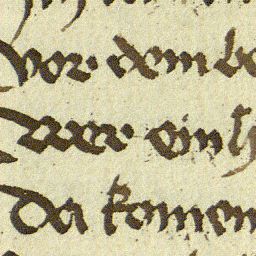 vor dem be
ein h
da komen